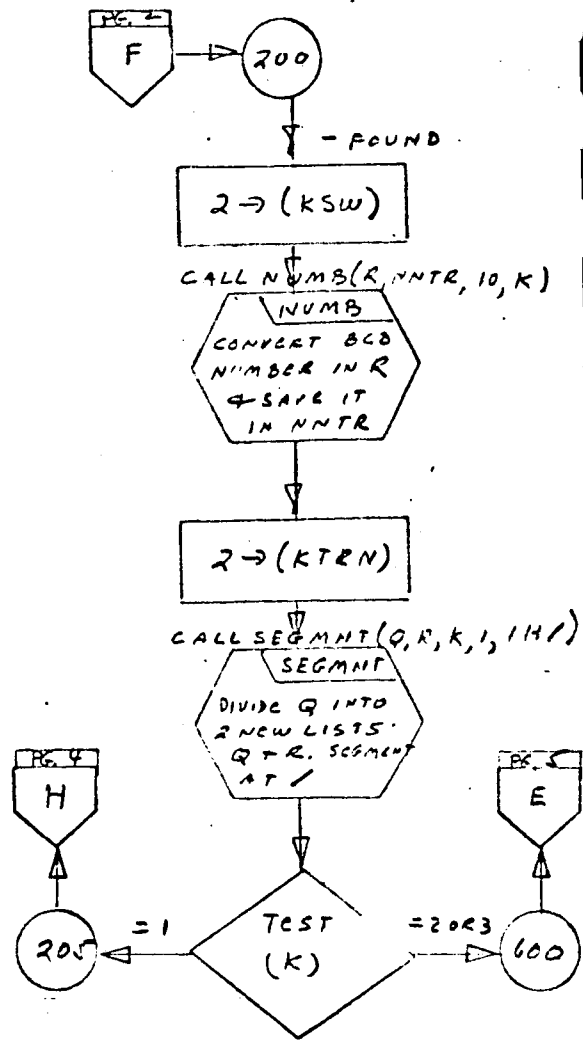 PG. 2
F
200
- FOUND
2 → (KSW)
CALL NUMB(R, NNTR, 10, K)
NUMB
CONVERT BCD
NUMBER IN R
& SAVE IT
IN NNTR
2 → (KTRN)
CALL SEGMNT(Q, R, K, 1, 1H/)
SEGMNT
DIVIDE Q INTO
2 NEW LISTS.
Q + R. SEGMENT
AT /
PG. 4
H
PG. 5
E
205
= 1
TEST
(K)
= 2 OR 3
600